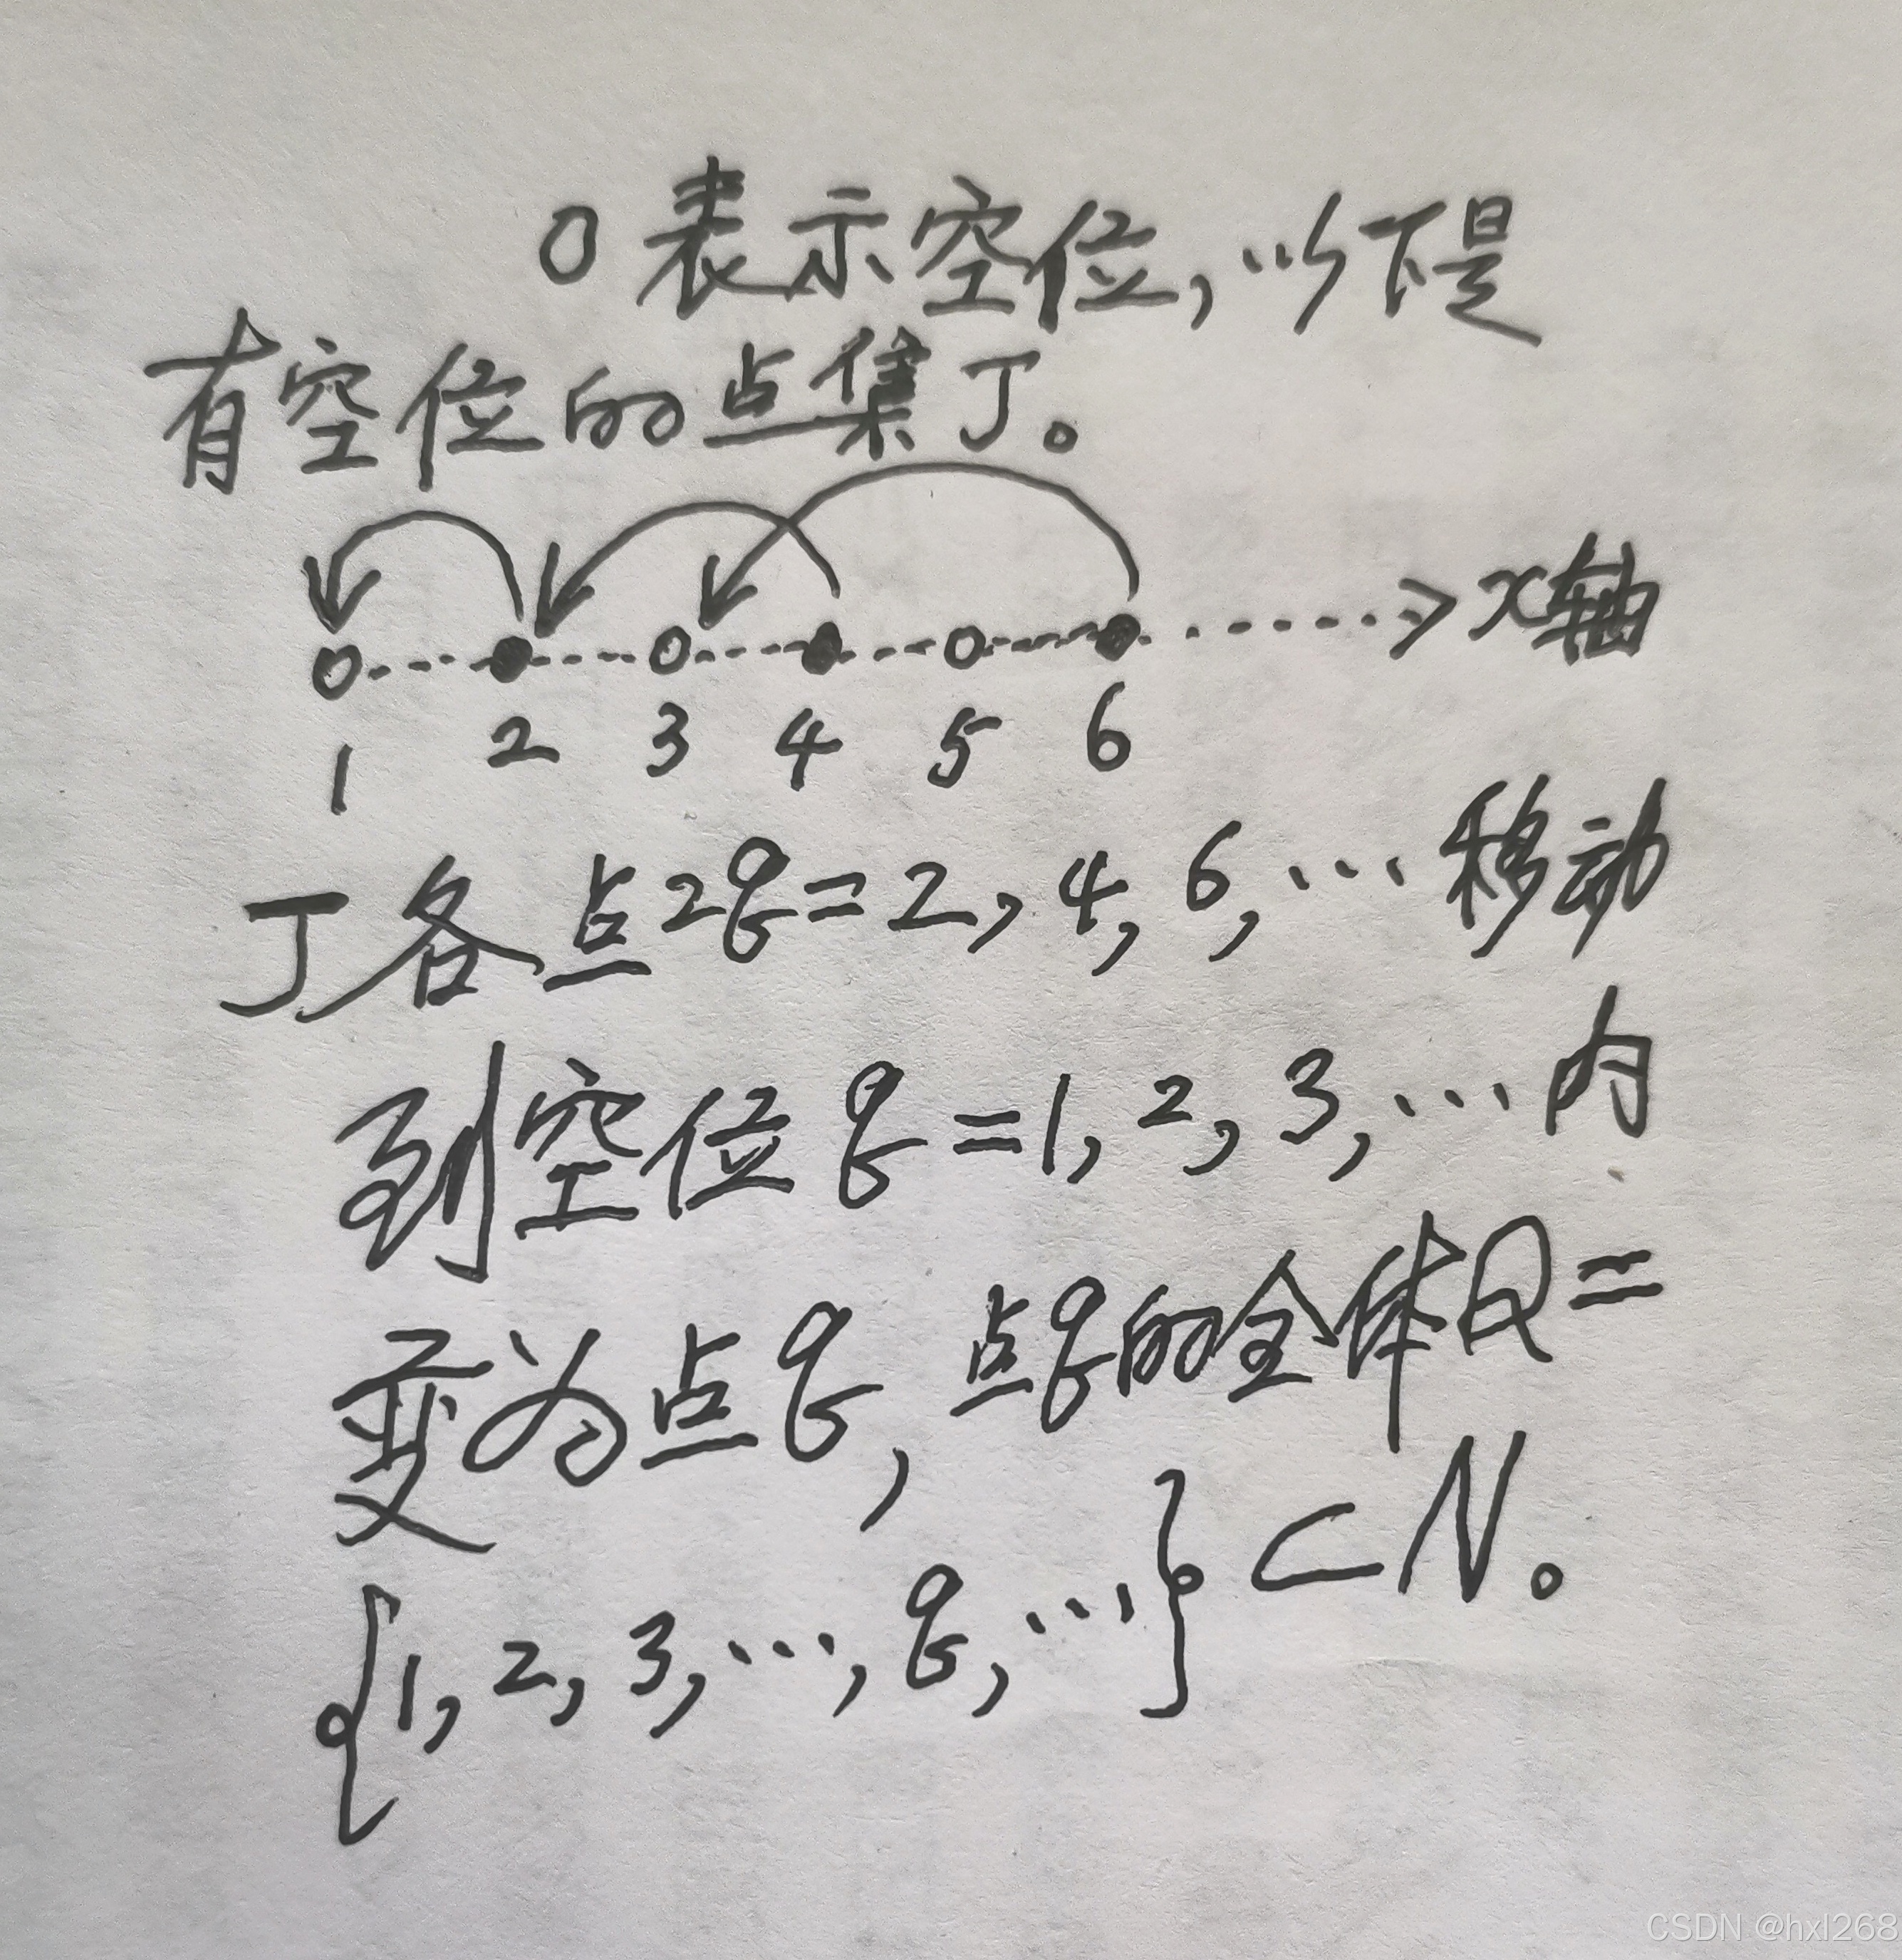 0表示空位,以下是
有空位的点集J。
x轴
1 2 3 4 5 6
J各点2q=2,4,6,…移动
到空位q=1,2,3,…内
变为点q,点q的全体Q=
{1,2,3,…,q,…}⊂N。
CSDN @hxl268